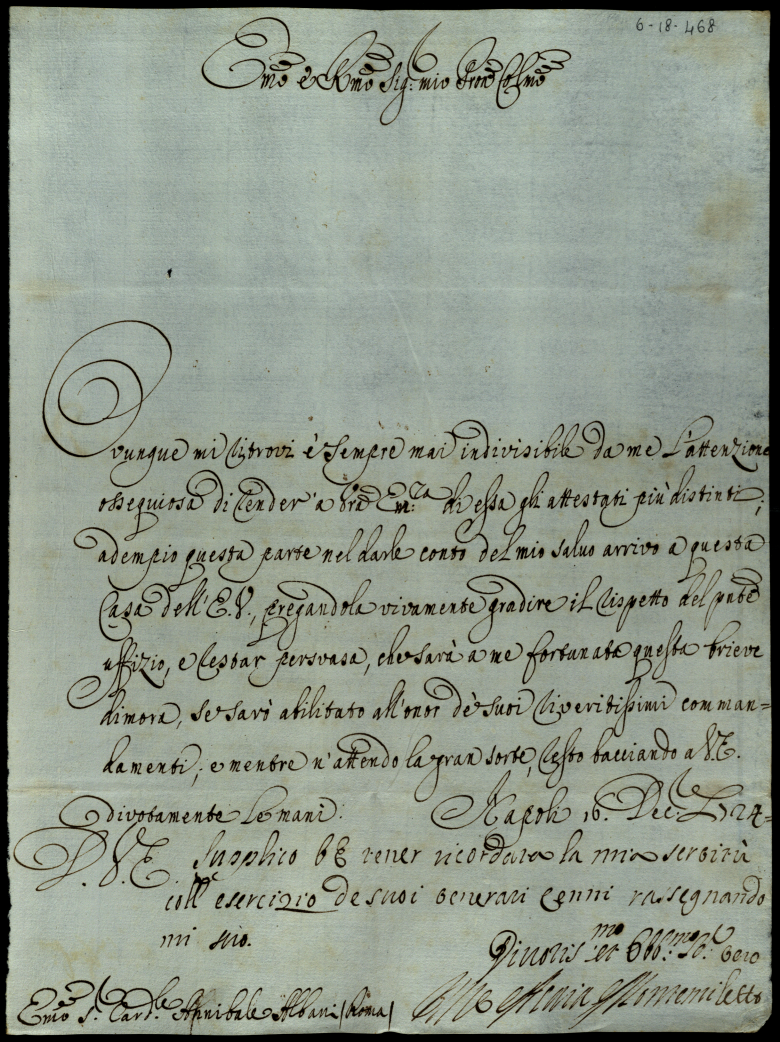 6-18-468
Emo e Rmo Sig: mio Pron Colmo
Ovunque mi ritrovi è sempre mai indivisibile da me l'attenzione
ossequiosa di render' a Vra Em:za di essa gli attestati più distinti;
adempio questa parte nel darle conto del mio salvo arrivo a questa
Casa dell'E.V., pregandola vivamente gradire il rispetto del pnte
uffizio, e restar persvasa, che sarà a me fortunata questa brieve
dimora, se sarò abilitato all'onor de suoi riveritissimi comman=
damenti; e mentre n'attendo la gran sorte, resto bacciando a V.E.
divotamente le mani. Napoli 16. Dec: 1724=
D. V. E. Supplico VE tener ricordata la mia servitù
coll' esercizio de suoi venerati cenni rassegnando
mi suo.
Divotis:mo et Obb:mo vero
Emo S. Card.le Annibale Albani / Roma /